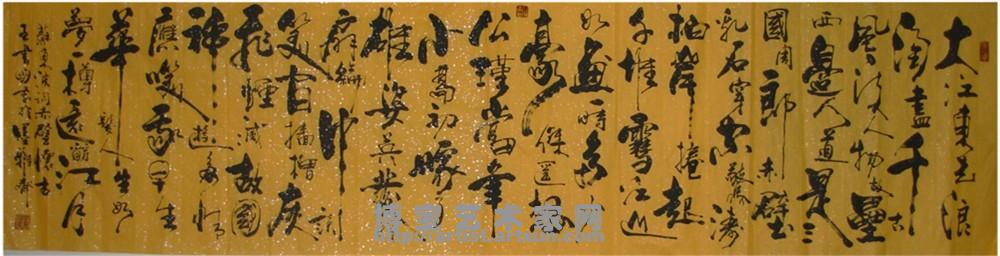 大江東去浪
淘盡千古
風流人物故壘
西邊人道是三
國周郎赤壁
乱石穿空驚濤
拍岸捲起
千堆雪江山
如畫一時多少
豪傑遥想
公瑾當年
小喬初嫁了
雄姿英發
羽扇綸巾談
笑间檣櫓灰
飛煙滅故國
神遊多情
應笑我早生
華髮人生如
夢一樽還酹江月
蘇東坡詞赤壁懷古
博宝艺术家网
http://artist.artxun.com